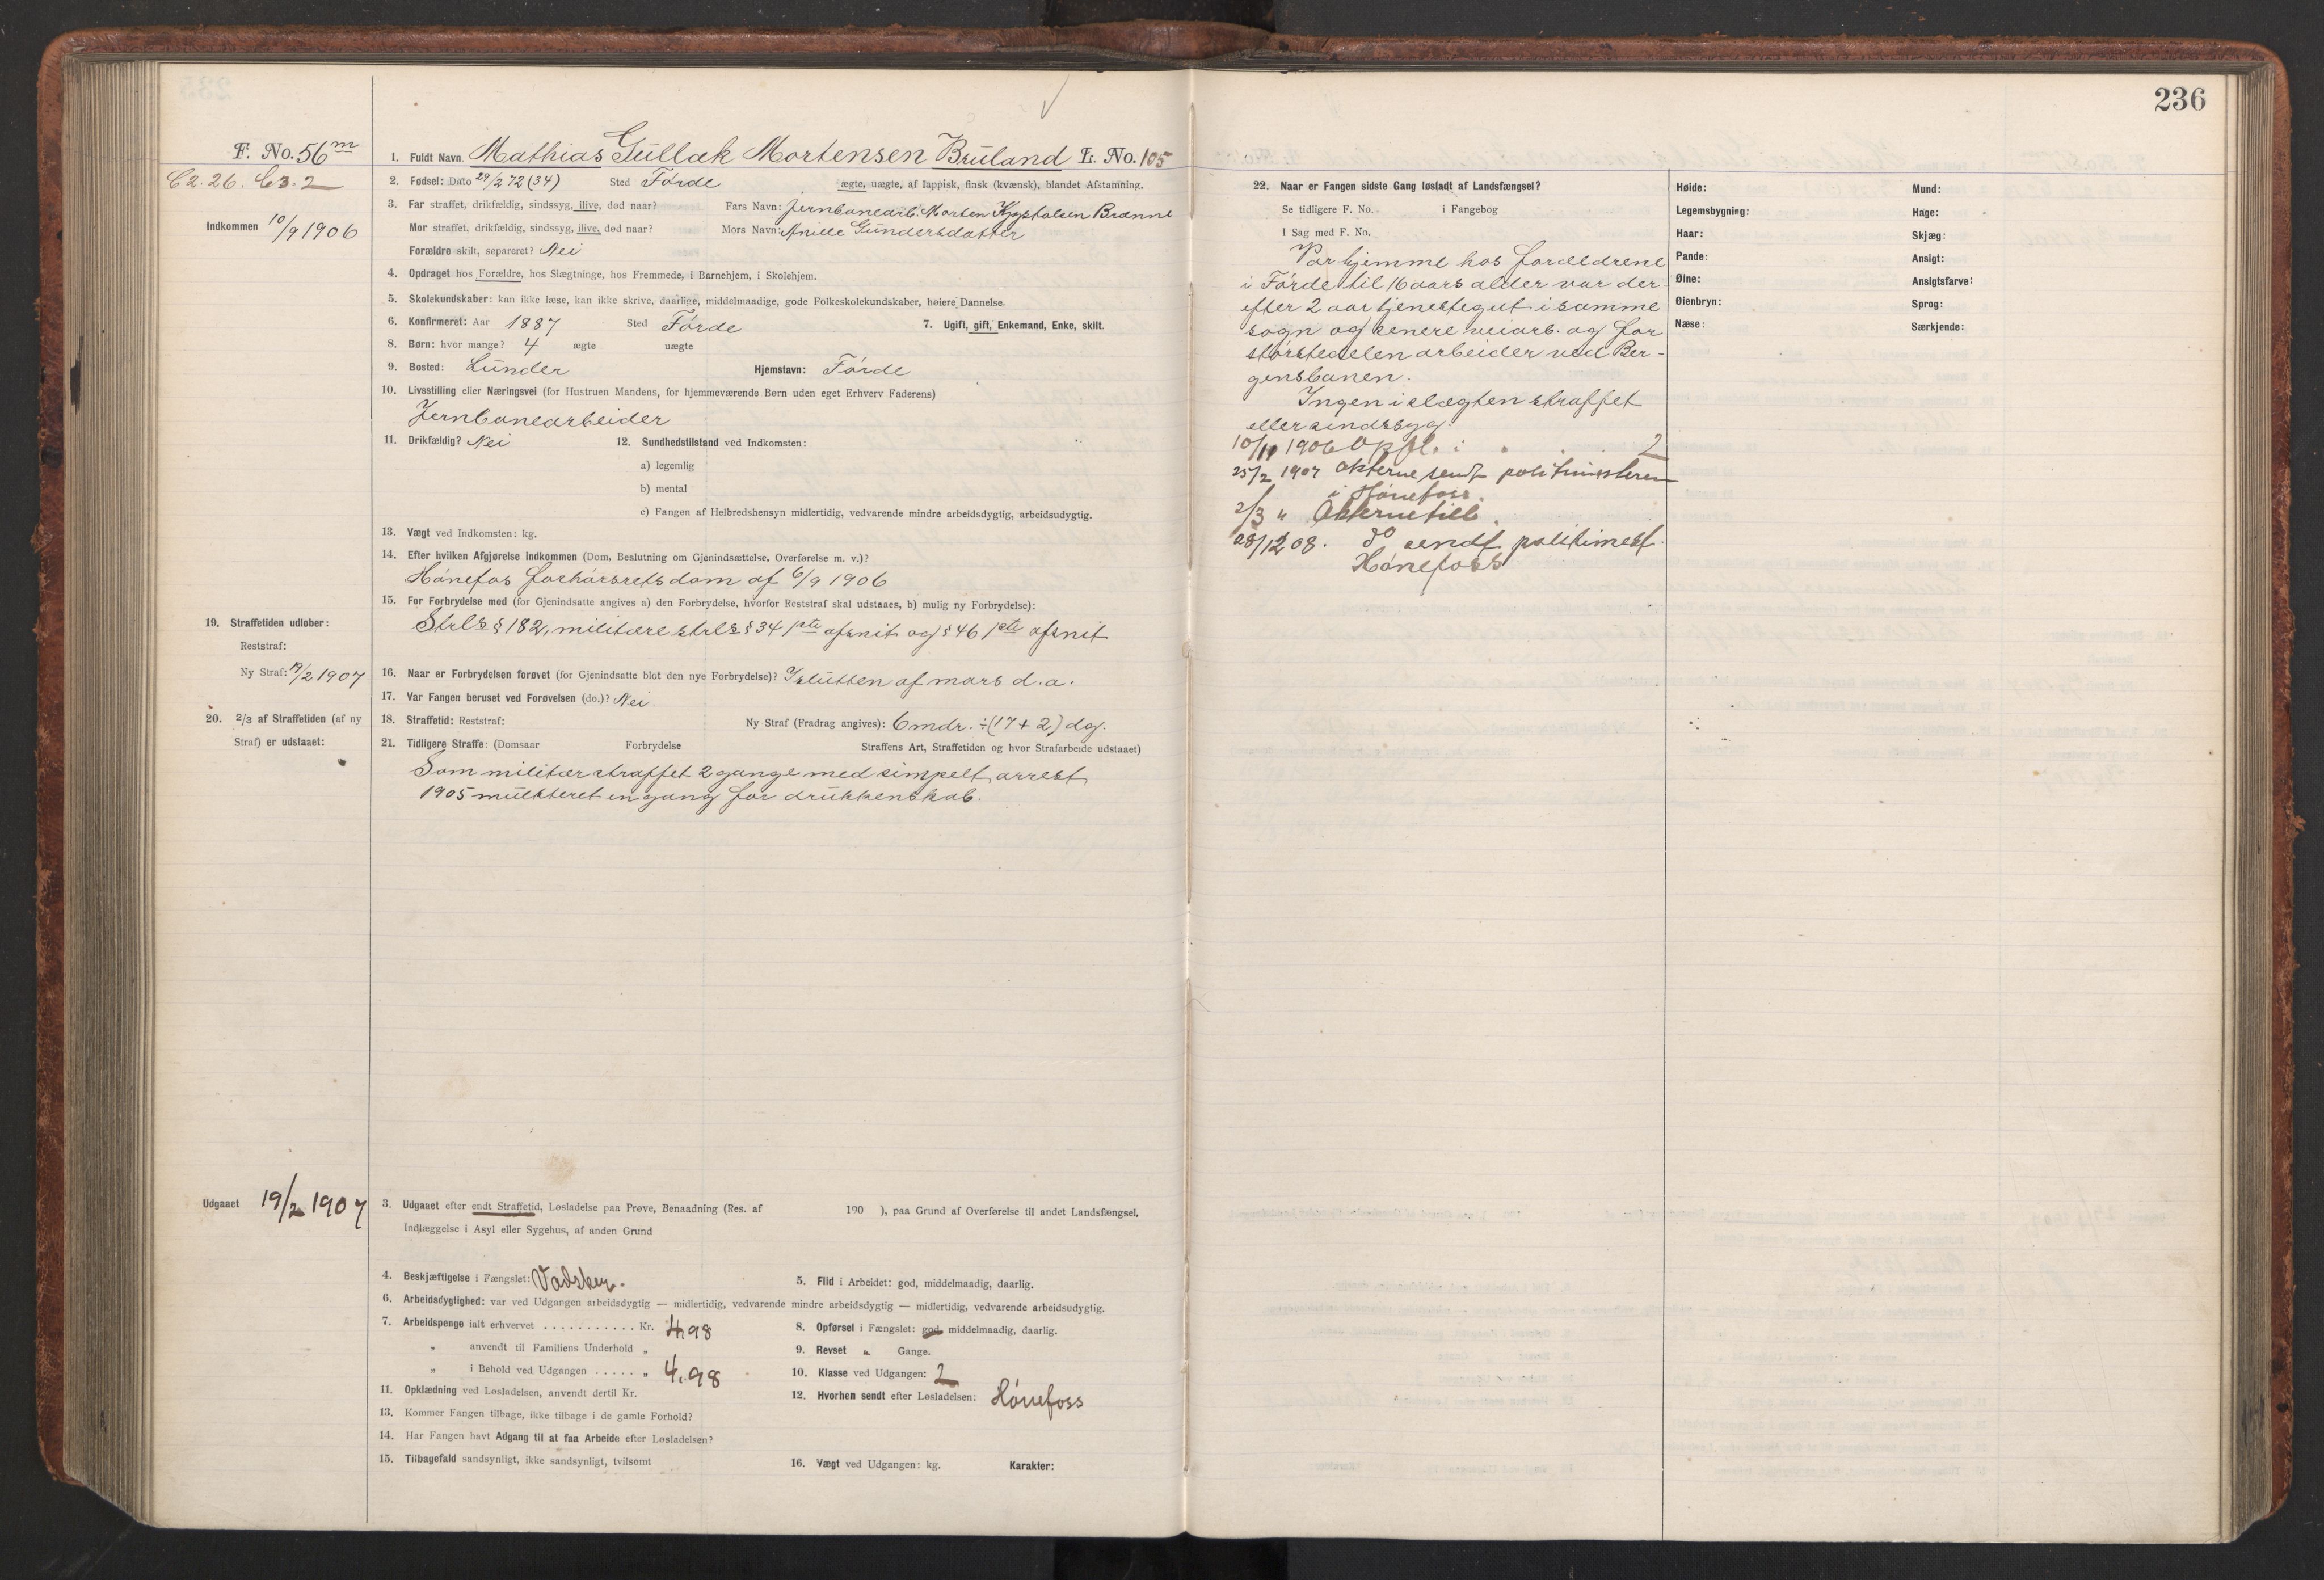 236
F. No. 56 m
C2. 26. C3. 2
Indkommen 10/9 1906
1. Fuldt Navn. Mathias Gullak Mortensen Bruland L. No. 105
2. Fødsel: Dato 29/2 72 (34) Sted Førde ægte, uægte, af lappisk, finsk (kvænsk), blandet Afstamning.
3. Far straffet, drikfældig, sindssyg, ilive, død naar? Fars Navn: Jernbanearb. Morten
Mor straffet, drikfældig, sindssyg, ilive, død naar? Mors Navn: Gundersdatter
Forældre skilt, separeret? Nei
4. Opdraget hos Forældre, hos Slægtninge, hos Fremmede, i Barnehjem, i Skolehjem.
5. Skolekundskaber: kan ikke læse, kan ikke skrive, daarlige, middelmaadige, gode Folkeskolekundskaber, høiere Dannelse.
6. Konfirmeret: Aar 1887 Sted Førde 7. Ugift, gift, Enkemand, Enke, skilt.
8. Børn: hvor mange? 4 ægte uægte
9. Bosted: Lunder Hjemstavn: Førde
10. Livsstilling eller Næringsvei (for Hustruen Mandens, for hjemmeværende Børn uden eget Erhverv Faderens)
Jernbanearbeider
11. Drikfældig? Nei 12. Sundhedstilstand ved Indkomsten:
a) legemlig
b) mental
c) Fangen af Helbredshensyn midlertidig, vedvarende mindre arbeidsdygtig, arbeidsudygtig.
13. Vægt ved Indkomsten: kg.
14. Efter hvilken Afgjørelse indkommen (Dom, Beslutning om Gjenindsættelse, Overførelse m. v.)?
Hønefos forhørsretsdom af 6/9 1906
15. For Forbrydelse mod (for Gjenindsatte angives a) den Forbrydelse, hvorfor Reststraf skal udstaaes, b) mulig ny Forbrydelse):
Strls § 182, militære strls § 34 1ste afsnit og § 46 1ste afsnit
16. Naar er Forbrydelsen forøvet (for Gjenindsatte blot den nye Forbrydelse)? I slutten af mars d. a.
17. Var Fangen beruset ved Forøvelsen (do.)? Nei.
18. Straffetid: Reststraf: Ny Straf (Fradrag angives): 6 mdr. ÷ (17 + 2) dg.
19. Straffetiden udløber:
Reststraf:
Ny Straf: 19/2 1907
20. 2/3 af Straffetiden (af ny
Straf) er udstaaet:
21. Tidligere Straffe: (Domsaar Forbrydelse Straffens Art, Straffetiden og hvor Strafarbeide udstaaet)
Som militær straffet 2 gange med simpelt arrest,
1905 mulkteret en gang for drukkenskab.
Udgaaet 19/2 1907
3. Udgaaet efter endt Straffetid, Løsladelse paa Prøve, Benaadning (Res. af 190 ), paa Grund af Overførelse til andet Landsfængsel,
Indlæggelse i Asyl eller Sygehus, af anden Grund
4. Beskjæftigelse i Fængslet: Vadsker. 5. Flid i Arbeidet: god, middelmaadig, daarlig.
6. Arbeidsdygtighed: var ved Udgangen arbeidsdygtig — midlertidig, vedvarende mindre arbeidsdygtig — midlertidig, vedvarende arbeidsudygtig.
7. Arbeidspenge ialt erhvervet . . . . . . . . . . . Kr. 4,98 8. Opførsel i Fængslet: god, middelmaadig, daarlig.
" anvendt til Familiens Underhold " 9. Revset " Gange.
" i Behold ved Udgangen . . . . . " 4.98 10. Klasse ved Udgangen: 2
11. Opklædning ved Løsladelsen, anvendt dertil Kr. 12. Hvorhen sendt efter Løsladelsen: Hönefoss
13. Kommer Fangen tilbage, ikke tilbage i de gamle Forhold?
14. Har Fangen havt Adgang til at faa Arbeide efter Løsladelsen?
15. Tilbagefald sandsynligt, ikke sandsynligt, tvilsomt 16. Vægt ved Udgangen: kg. Karakter:
22. Naar er Fangen sidste Gang løsladt af Landsfængsel?
Se tidligere F. No. i Fangebog
I Sag med F. No.
Var hjemme hos forældrene
i Førde til 16 aars alder var der-
efter 2 aar tjenestegut i samme
sogn og senere veiarb. og for
størstedelen arbeider ved Ber-
gensbanen.
Ingen i slægten straffet
eller sindssyg.
10/11 1906 Opfl. 2
25/2 1907 akterne sendt politimesteren
i Hönefoss.
2/3 " Akterne
28/12 08. do sendt politimest.
Hönefoss
Høide:
Legemsbygning:
Haar:
Pande:
Øine:
Øienbryn:
Næse:
Mund:
Hage:
Skjæg:
Ansigt:
Ansigtsfarve:
Sprog:
Særkjende: